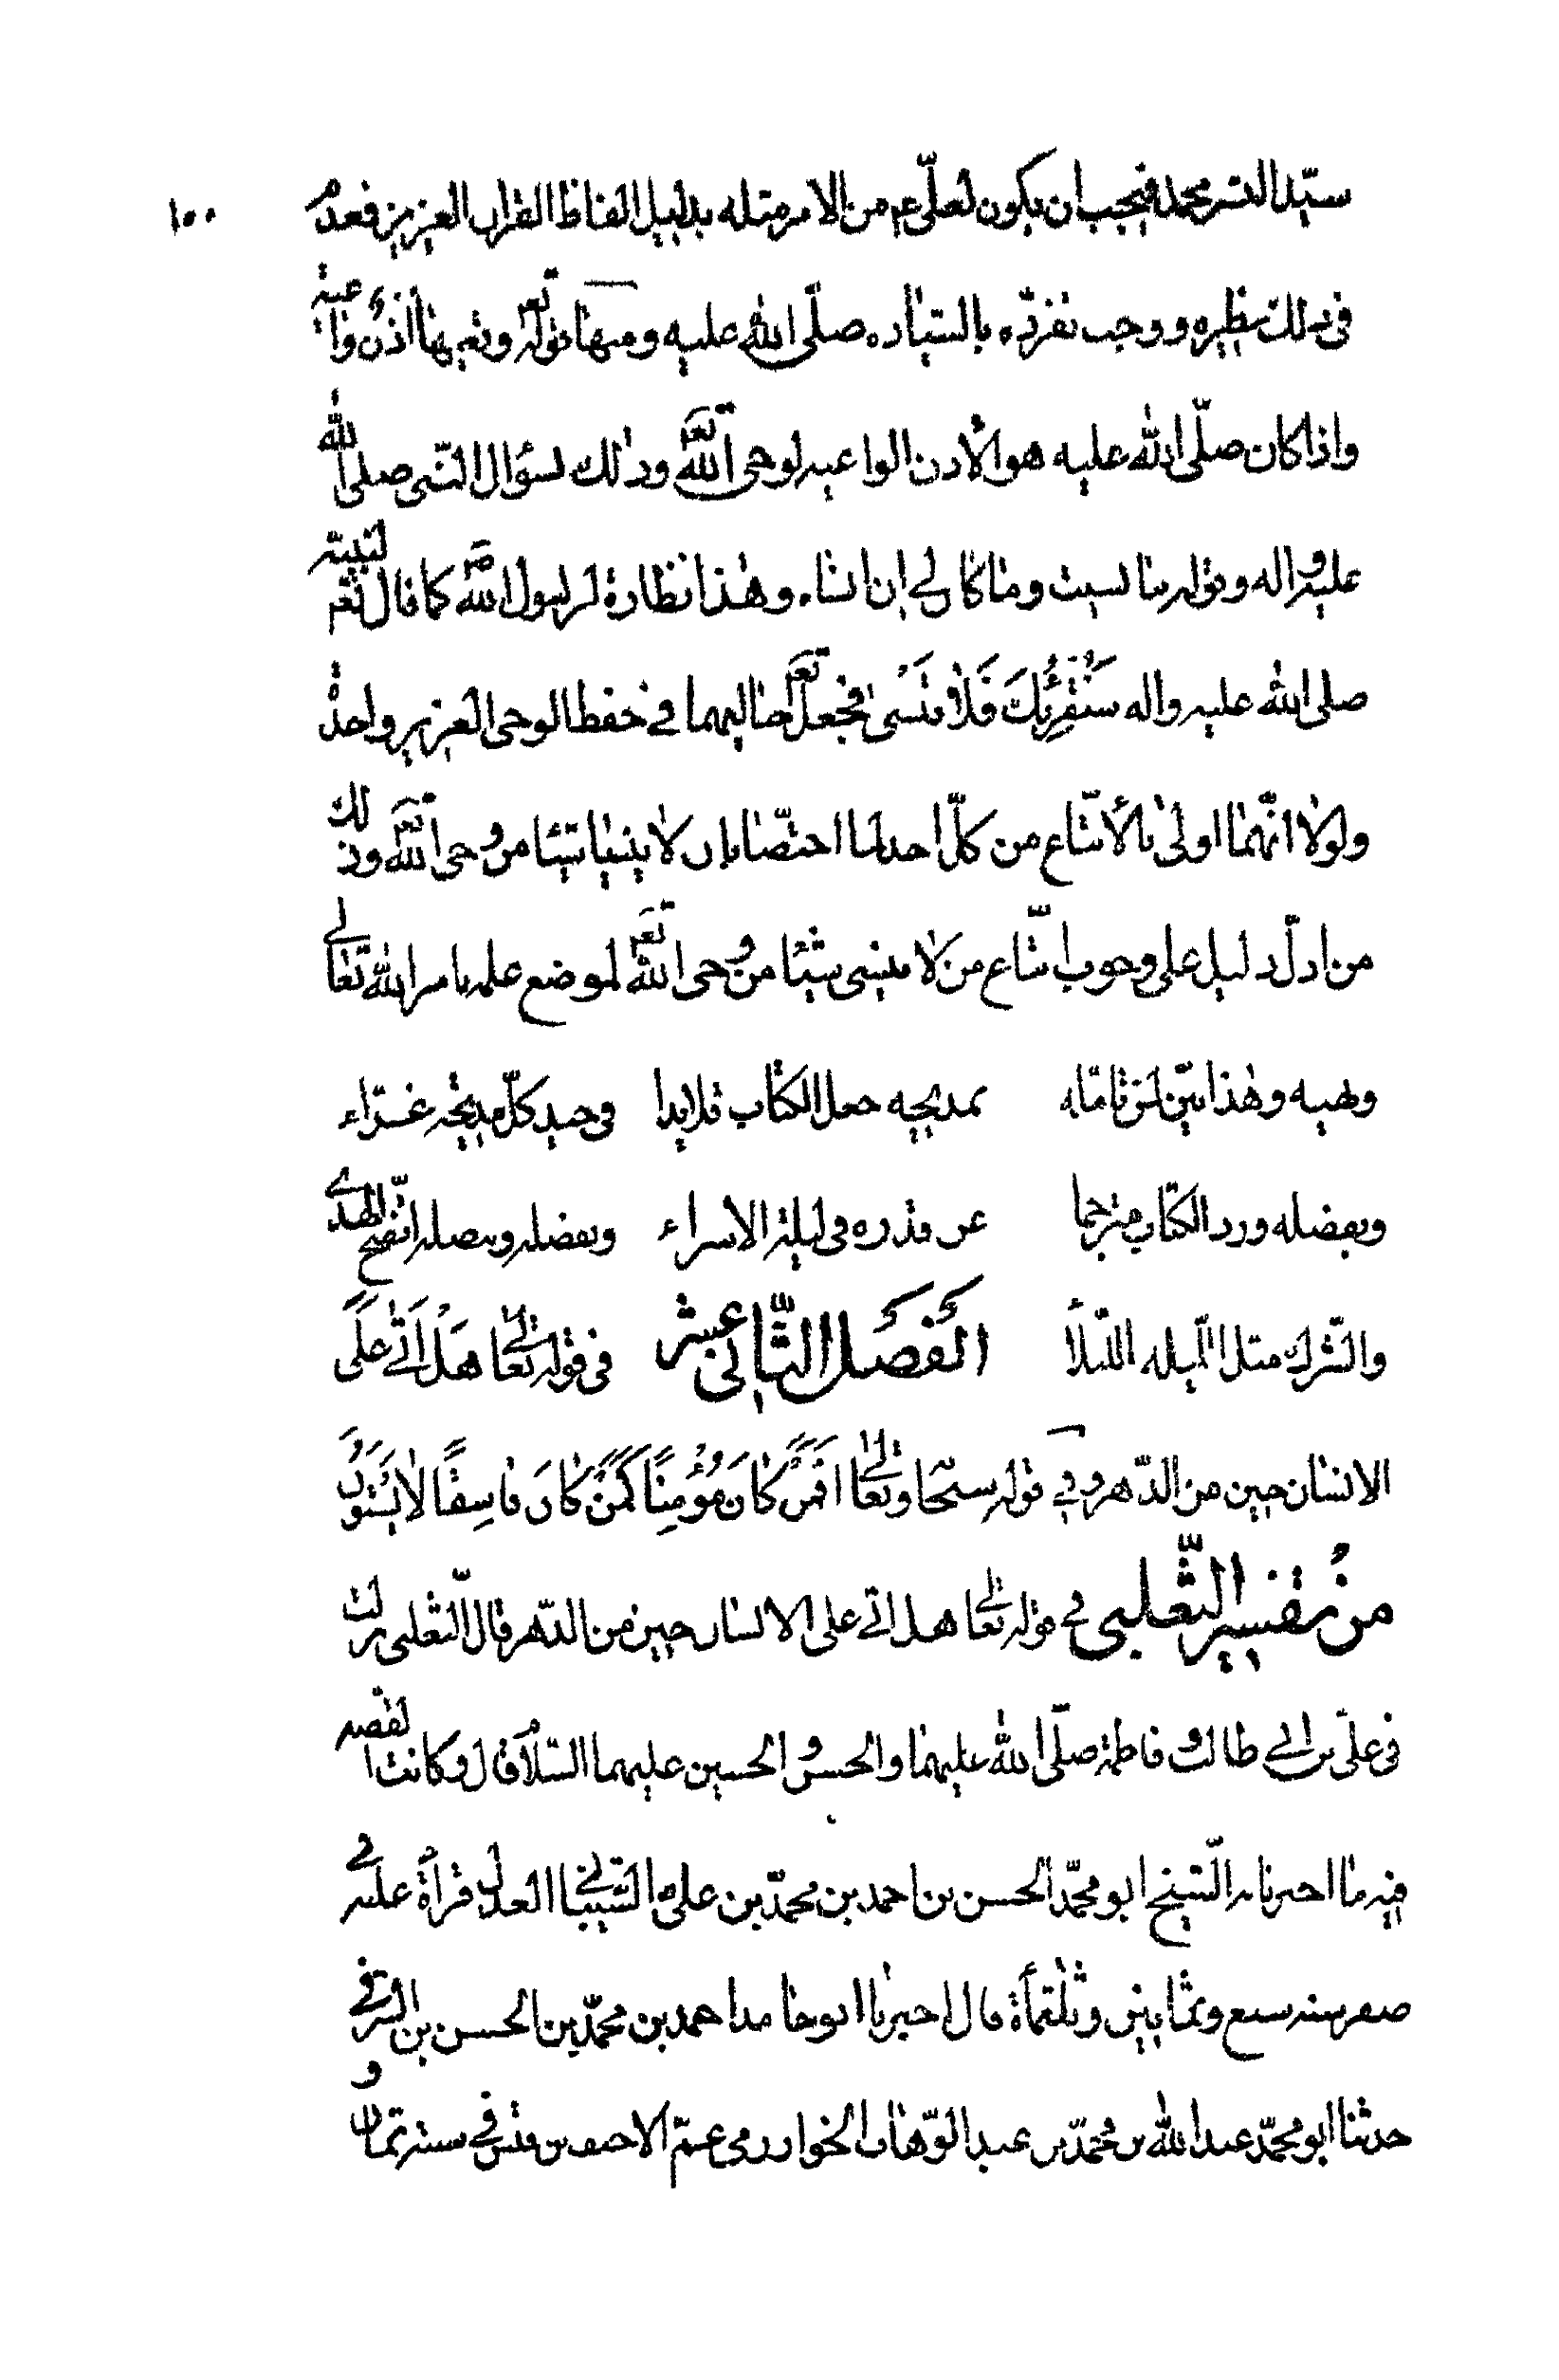 ١٠٠
سيّد البشر محمد فيجب ان يكون لعلّي ع من الامر مثله بدليل الفاظ القران العزيز فعدم
في ذلك نظيره ووجب تفرّده بالسّيادة صلّى اللّه عليه ومنها قوله تع وتعيها أذن واعية
واذا كان صلّى اللّه عليه هو الاذن الواعيه لوحي اللّه تع وذلك لسؤال النّبي صلى اللّه
عليه واله وقوله ما نسيت وما كان لي ان انساه وهذا نظارة لرسول اللّه ص كما قال تع لنبيّه
صلى اللّه عليه واله سَنُقْرِئُكَ فَلا تَنْسى فجعل تع حاليهما في حفظ الوحي العزيز واحدة
ولولا انّهما اولى بالأتباع من كلّ احد لما اختصّا بان لا ينسيا شيئا من وحي اللّه تع وذلك
من ادلّ دليل على وجوب اتّباع من لا ينسى شيئا من وحي اللّه تع لموضع علمه بامر اللّه تعالى
ونهيه وهذا بيّن لمن تامّله بمديحه جعل الكتاب قلايدا في جيد كلّ مديحة غرّاء
وبفضله ورد الكتاب مترجما عن قدره في ليلة الاسراء وبفضله وبنصله اتّضح الهدى
والشّرك مثل اللّيلة اللّيلأ الفَصَل الثّاني عشر في قوله تعالى هَلْ اَتى عَلَى
الانسان حين من الدّهر وفي قوله سبحا وتعالى افَمَنْ كانَ مُؤْمِنًا كَمَنْ كانَ فاسِقًا لا يَسْتَوُنَ
من تفسير الثّعلبي في قوله تعالى هل اتى على الانسان حين من الدّهر قال الثّعلبي نزلت
في علي بن ابي طالب وفاطمة صلّى اللّه عليهما والحسن والحسين عليهما السّلام قال وكانت القصّه
فيه ما اخبرنا به الشّيخ ابو محمّد الحسن بن احمد بن محمّد بن علي الشّيباني العدل قراءة عليه في
صفر سنة سبع وثمانين وثلثمأة قال اخبرنا ابو حامد احمد بن محمّد بن الحسن بن الشرقي
و
حدثنا ابو محمّد عبد اللّه بن محمّد بن عبد الوّهاب الخوارزمي عمّ الاحنف بن قيس في سنة ثمان